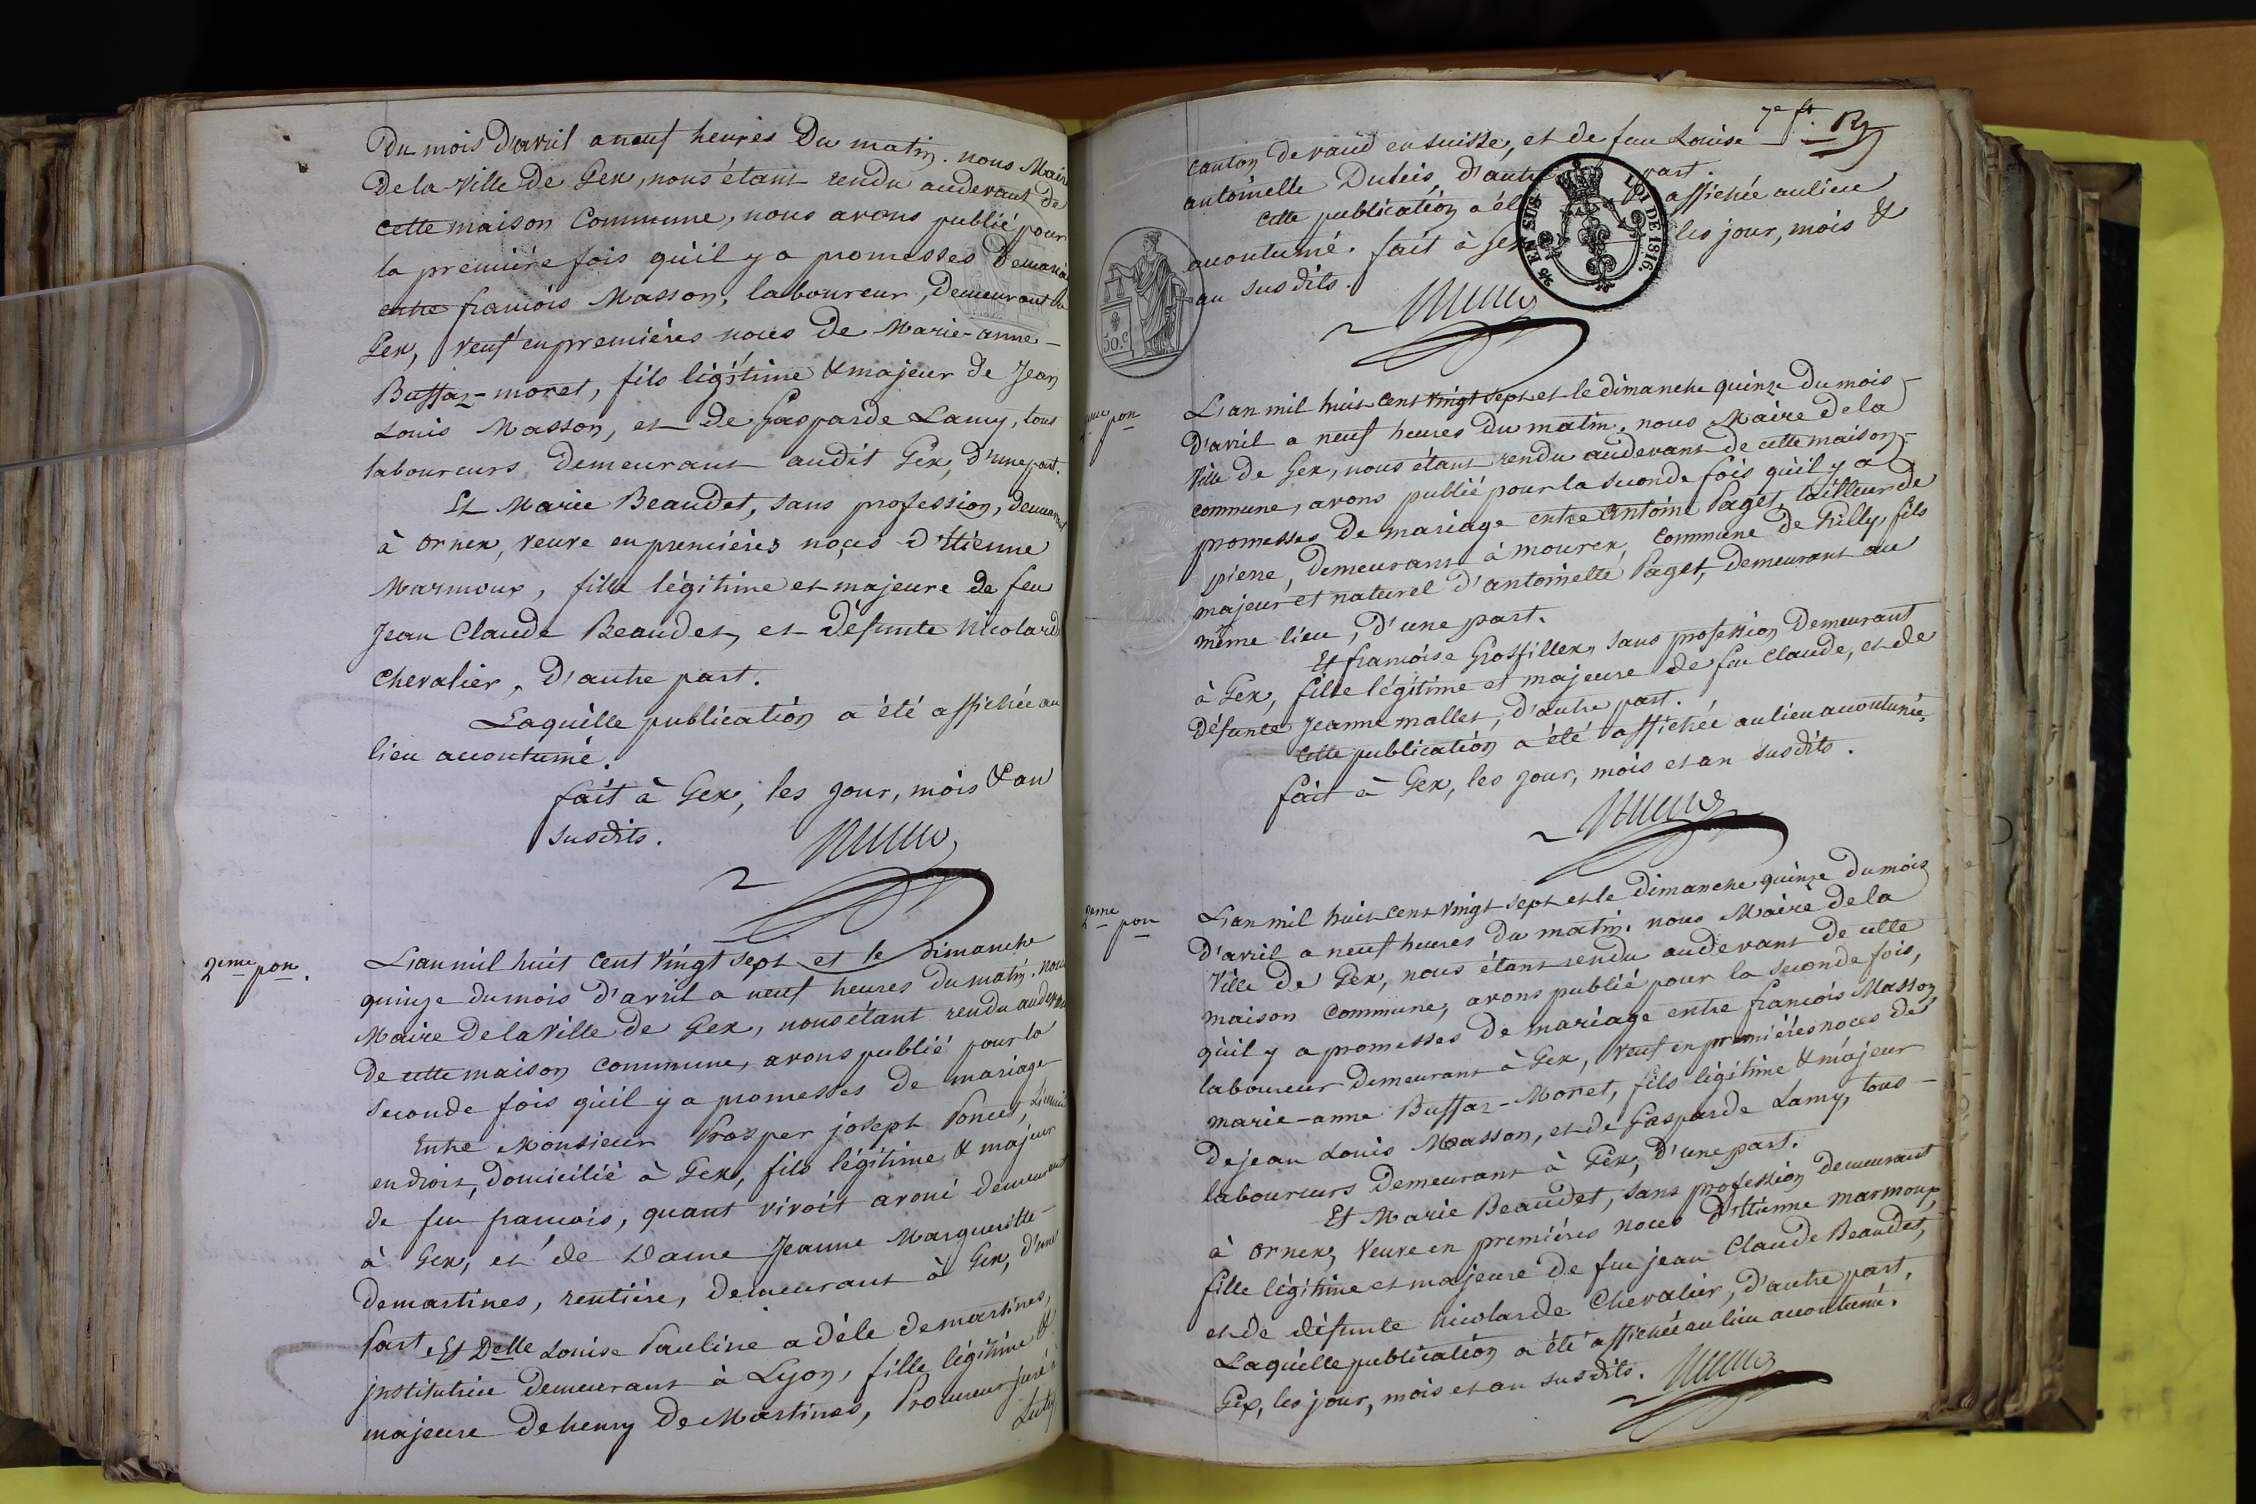 Du mois d'avril a neuf heures Du matin. nous Maire
De la Ville de Gex, nous étant rendu audevant de
cette maison Commune, nous avons publié pour
la premiére fois qu'il y a promesses De mariage
entre francois Masson, laboureur, Demeurant à
Gex, Veuf en premiéres noces De Marie-anne-
Buffaz-moret, fils légitime & majeur de Jean
Louis Masson, et de Gasparde Lamy, tous
laboureurs Demeurant audit Gex, d'une part.
Et Marie Beaudet, sans profession, demeurant
à ornex, veuve en premiéres noces d'Etienne
Marmoux, fille légitime et majeure de feu
Jean Claude Beaudet, et défunte Nicolarde
Chevalier, D'autre part.
Laquelle publication a été affichée au
lieu accoutumé.
fait à Gex, les jour, mois & an
susdits.
2eme pon.
L'an mil huit cent vingt sept et le Dimanche
quinze du mois d'avril a neuf heures du matin. nous
Maire De la Ville de Gex, nous étant rendu audevant
De cette maison commune, avons publié pour la
seconde fois qu'il y a promesses de mariage
Entre Monsieur Prosper joseph Poncet, Licencié
en droit, domicilié à Gex, fils légitime & majeur
de feu francois, quant vivoit avoué demeurant
à Gex, et de Dame Jeanne Margueritte-
demartines, rentiére, demeurant à Gex, d'une
Part. Et Delle Louise Pauline adèle demartines,
institutrice demeurant à Lyon, fille légitime &
majeure de henry de Martines, Procureur juré à
7e ft.
canton De vaud en suisse, et de feu Louise
antoinette Duteis, d'autre part.
Cette publication a été affichée au lieu
accoutumé. fait à Gex les jour, mois &
an susdits.
% EN SUS LOI DE 1816.
50.c
2eme pon
L'an mil huit cent vingt sept et le dimanche quinze du mois-
D'avril a neuf heures du matin, nous Maire de la
Ville de Gex, nous étant rendu audevant de cette maison-
commune, avons publié pour la seconde fois qu'il y a
promesses de mariage entre Antoine Paget, tailleur de
pierre, demeurant à mourex, commune de Grilly, fils
majeur et naturel d'antoinette Paget, demeurant au
même lieu, d'une part.
Et francoise Grosfillex, sans profession Demeurant
à Gex, fille légitime et majeure de feu Claude, et de
défunte Jeanne mallet, d'autre part.
Cette publication a été affichée au lieu accoutumé,
fait à Gex, les jour, mois et an susdits.
2eme pon
L'an mil huit cent vingt sept et le dimanche quinze du mois
D'avril a neuf heures du matin. nous Maire de la
Ville de Gex, nous étant rendu audevant de cette
maison commune, avons publié pour la seconde fois,
qu'il y a promesses de mariage entre francois Masson,
laboureur Demeurant à Gex, Veuf en premiéres noces de
marie-anne Buffaz-Moret, fils légitime & majeur
De jean Louis Masson, et de Gasparde Lamy, tous-
laboureurs demeurant à Gex, d'une part.
Et Marie Beaudet, sans profession demeurant
à ornex, Veuve en premiéres noces d'Etienne marmoux,
fille légitime et majeure de feu jean Claude Beaudet,
et de défunte nicolarde Chevalier, d'autre part,
Laquelle publication a été affichée au lieu accoutumé.
Gex, les jour, mois et an susdits.